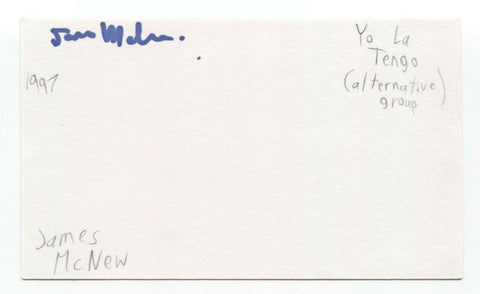 Yo La
Tengo
(alternative)
group
1997
James
McNew